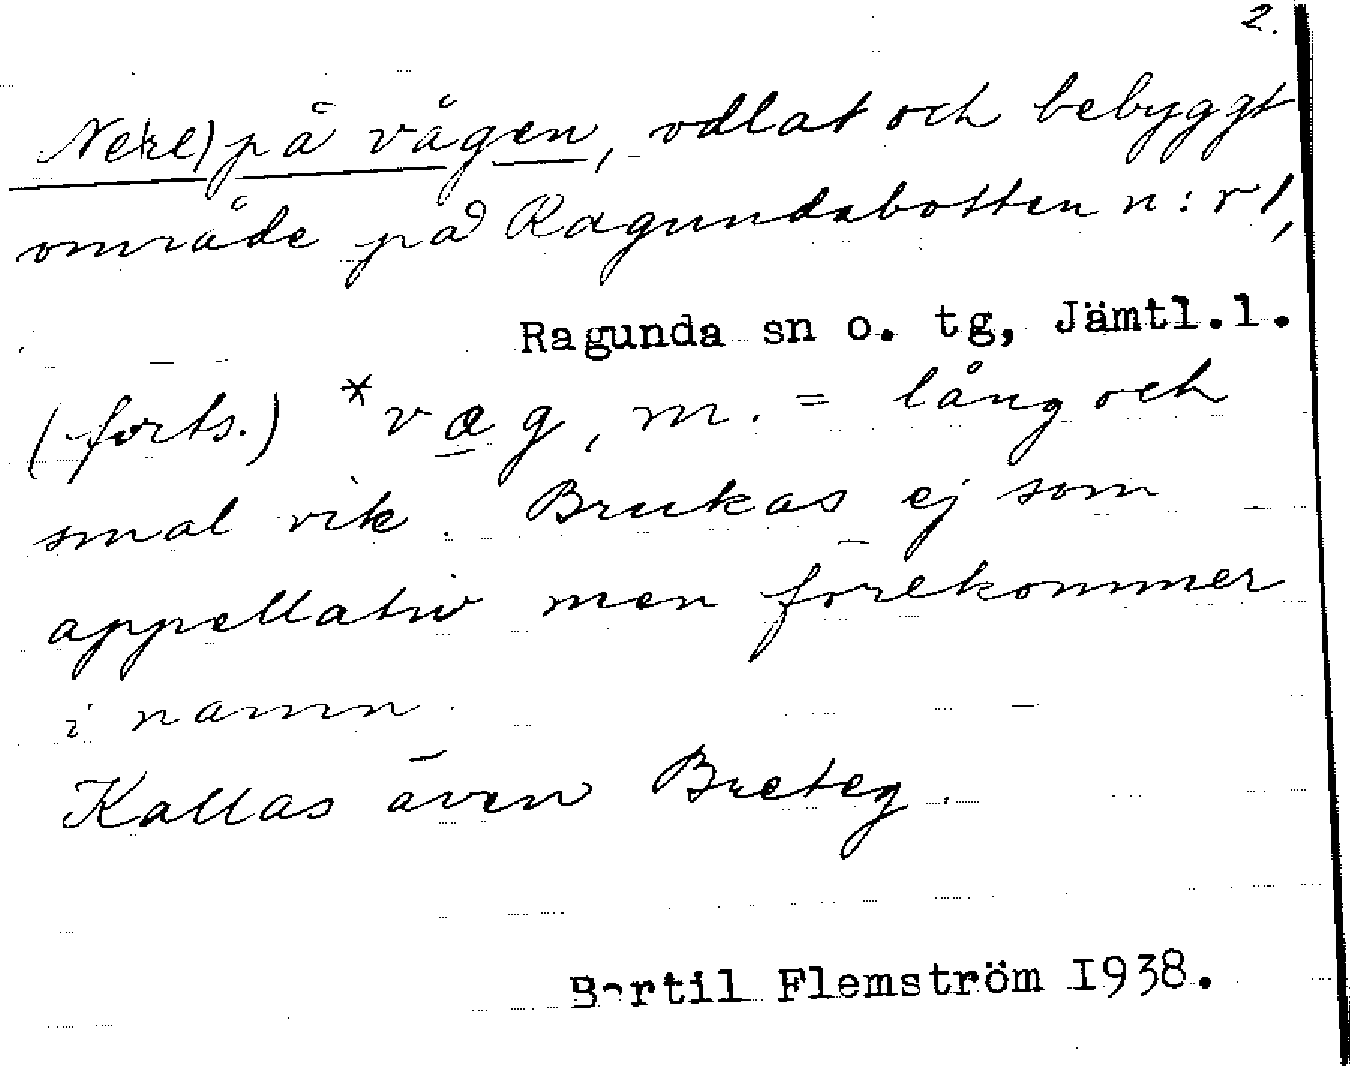 2.
Ne(re) på vågen, odlat och bebyggt
område på Ragundabotten n:r 1,
Ragunda sn o. tg, Jämtl.l.
(forts.) *væg, m. = lång och
smal vik. Brukas ej som
appellativ men förekommer
i namn.
Kallas även Breteg.
Bertil Flemström 1938.